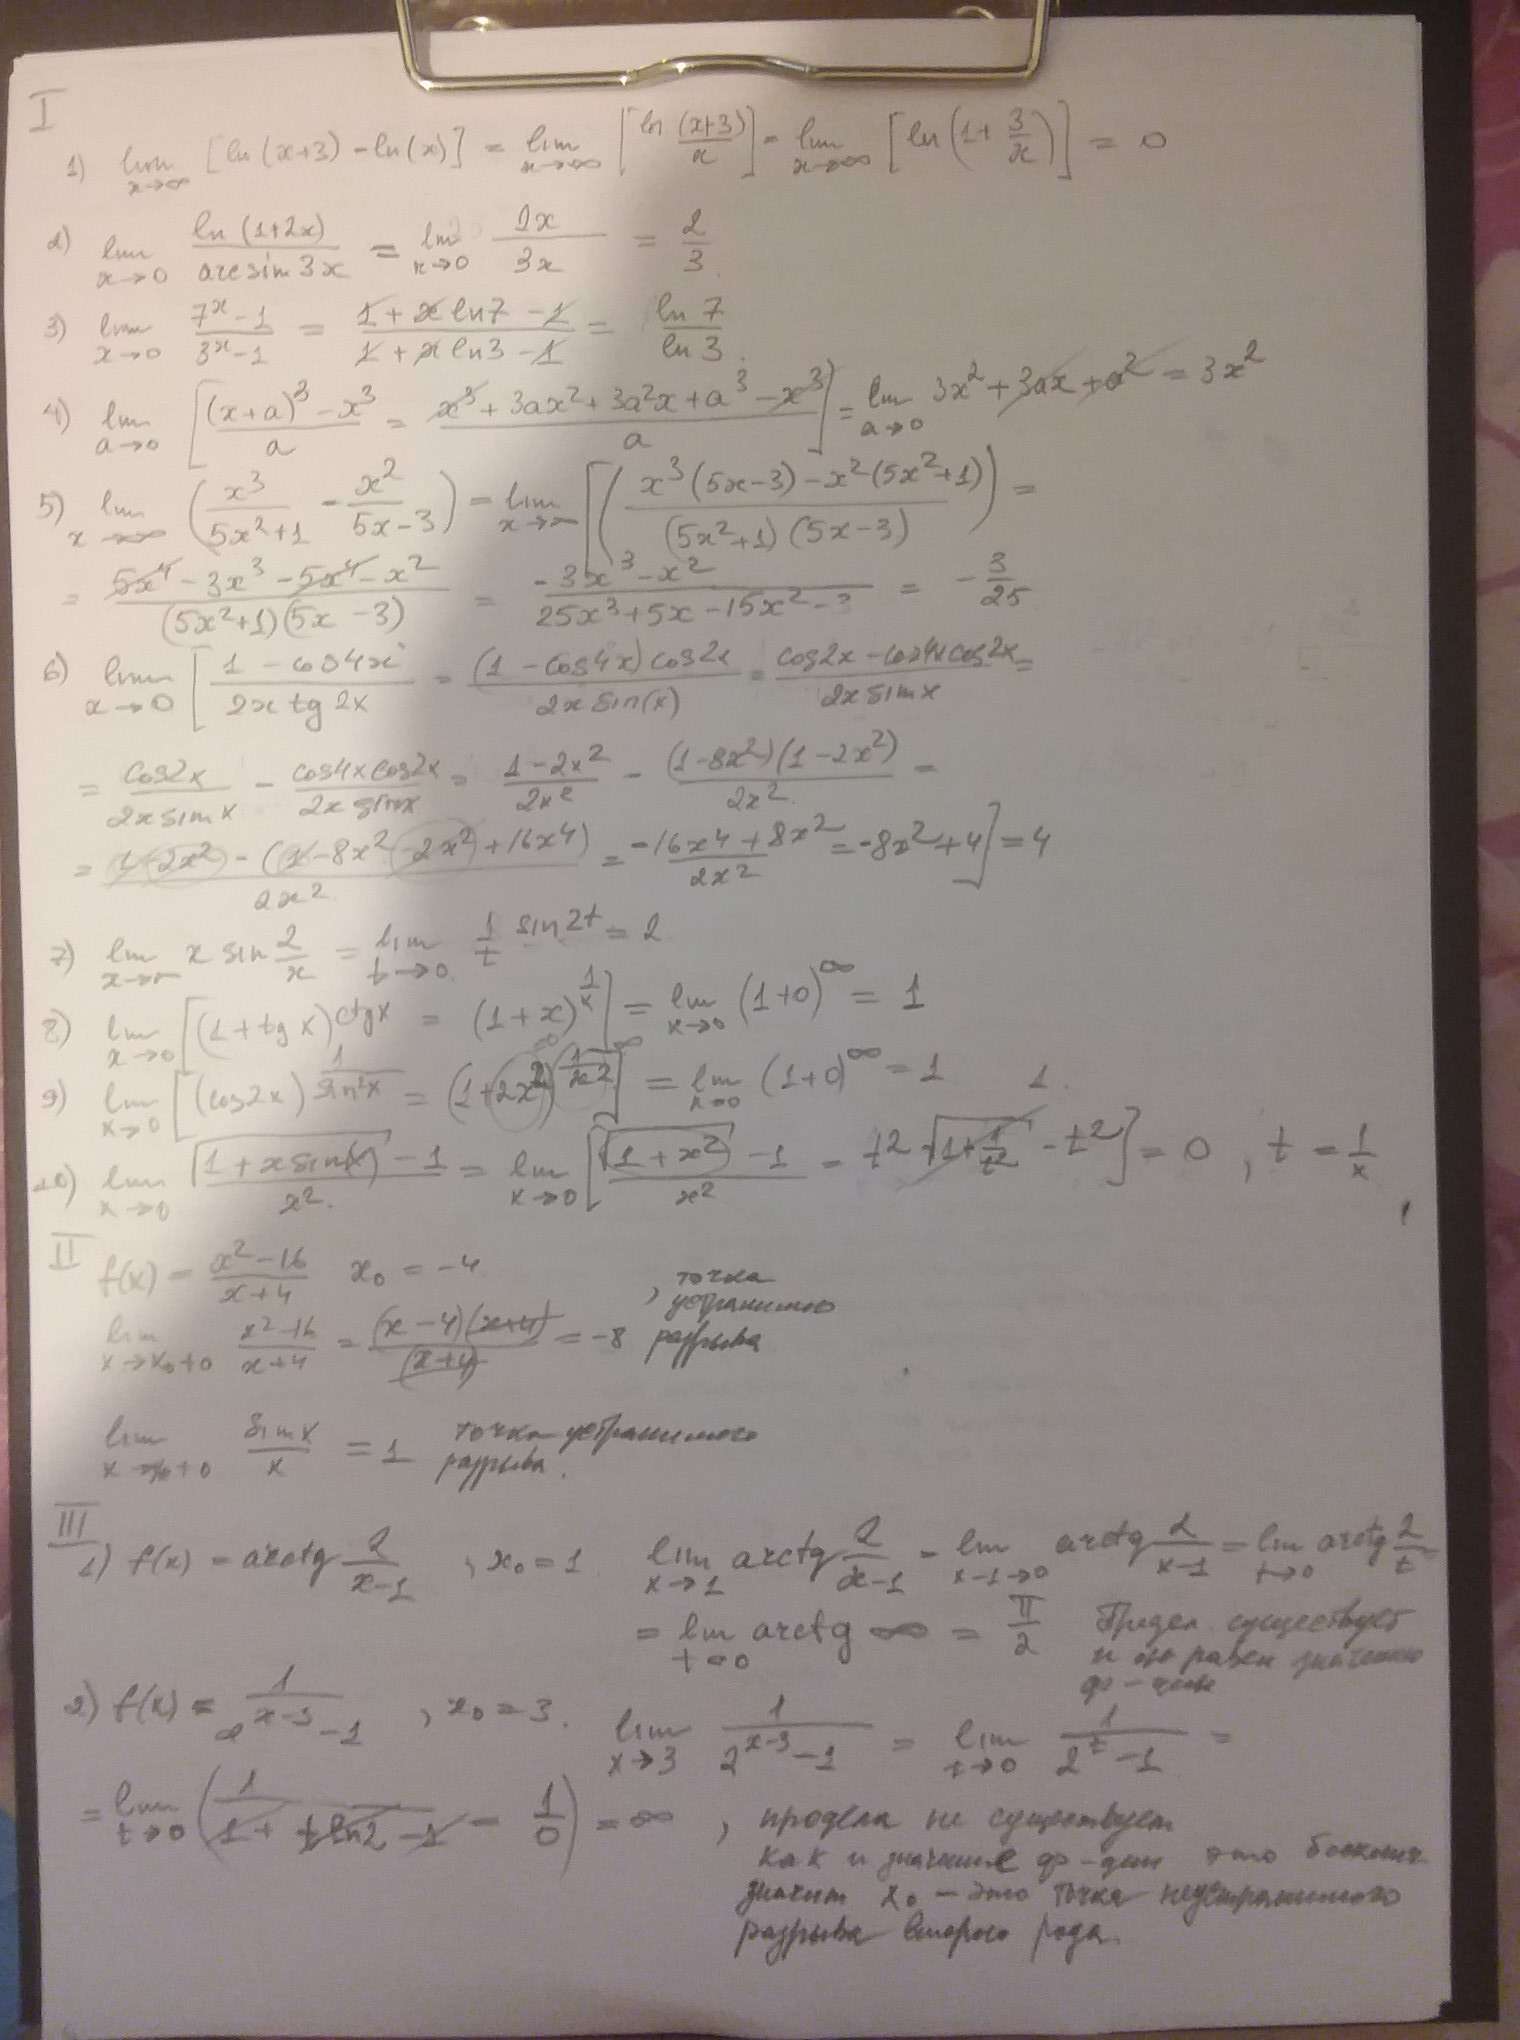 I
1) lim x→∞ [ln(x+3) - ln(x)] = lim x→∞ [ln (x+3)/x] = lim x→∞ [ln(1 + 3/x)] = 0
2) lim x→0 ln(1+2x)/arcsin3x = lim x→0 2x/3x = 2/3
3) lim x→0 (7^x - 1)/(3^x - 1) = (1 + x ln7 - 1)/(1 + x ln3 - 1) = ln7/ln3.
4) lim a→0 [((x+a)^3 - x^3)/a = (x^3 + 3ax^2 + 3a^2x + a^3 - x^3)/a] = lim a→0 3x^2 + 3ax + a^2 = 3x^2
5) lim x→∞ (x^3/(5x^2+1) - x^2/(5x-3)) = lim x→∞ [(x^3(5x-3) - x^2(5x^2+1))/((5x^2+1)(5x-3))) =
= (5x^4 - 3x^3 - 5x^4 - x^2)/((5x^2+1)(5x-3)) = (-3x^3 - x^2)/(25x^3 + 5x - 15x^2 - 3) = -3/25
6) lim x→0 [(1 - cos4x)/(2x tg2x) = (1 - cos4x)cos2x/(2x sin(x)) = (cos2x - cos4x cos2x)/(2x sinx) =
= cos2x/(2x sinx) - cos4x cos2x/(2x sinx) = (1 - 2x^2)/2x^2 - (1-8x^2)(1-2x^2)/2x^2 =
= (1 - 2x^2 - (1 - 8x^2 - 2x^2 + 16x^4)/2x^2 = (-16x^4 + 8x^2)/2x^2 = -8x^2 + 4] = 4
7) lim x→∞ x sin 2/x = lim t→0 1/t sin2t = 2
8) lim x→0 [(1 + tgx)^ctgx = (1 + x)^(1/x)] = lim x→0 (1+0)^∞ = 1
9) lim x→0 [(cos2x)^(1/sin^2x) = (1+2x^2)^(1/x^2)] = lim x→0 (1+0)^∞ = 1 1.
10) lim x→0 (√(1+x sin(x)) - 1)/x^2 = lim x→0 [(√(1+x^2) - 1)/x^2 = t^2 √(1 + 1/t^2) - t^2] = 0, t = 1/x
II
f(x) = (x^2 - 16)/(x+4) x0 = -4
lim x→x0+0 (x^2 - 16)/(x+4) = (x-4)(x+4)/(x+4) = -8 , точка устранимого разрыва
lim x→x0+0 sinx/x = 1 точка устранимого разрыва.
III
1) f(x) = arctg 2/(x-1), x0 = 1 lim x→1 arctg 2/(x-1) = lim x-1→0 arctg 2/(x-1) = lim t→0 arctg 2/t =
= lim t→0 arctg ∞ = π/2 Предел существует и он равен значению ф-ции
2) f(x) = 1/(2^(x-3) - 1), x0 = 3. lim x→3 1/(2^(x-3) - 1) = lim t→0 1/(2^t - 1) =
= lim t→0 (1/(1 + t ln2 - 1) = 1/0) = ∞ , предела не существует
как и значение ф-ции это
значит x0 - это точка неустранимого
разрыва второго рода.